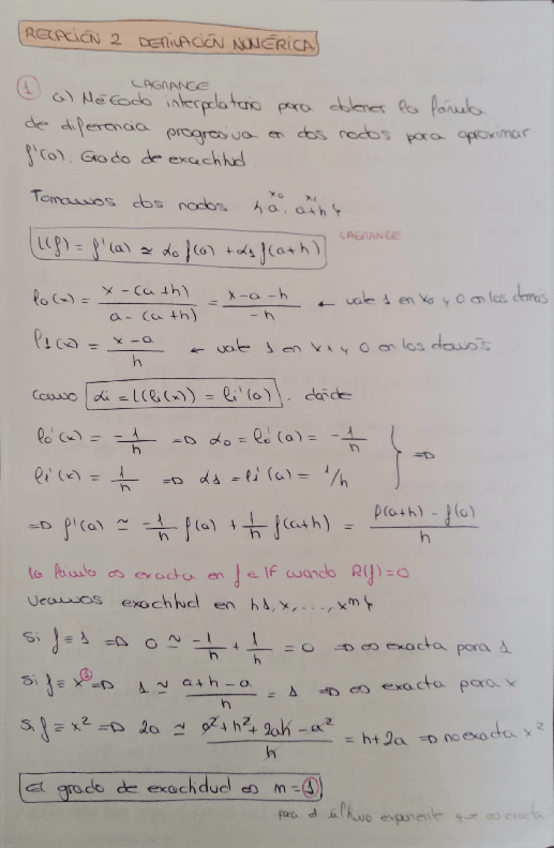 RELACIÓN 2 DERIVACIÓN NUMÉRICA
LAGRANGE
① a) Método interpolatorio para obtener la fórmula
de diferencia progresiva en dos nodos para aproximar
f'(a). Grado de exactitud
x₀ x₁
Tomamos dos nodos {a, a+h}
L(f) = f'(a) ≃ α₀ f(a) + α₁ f(a+h)
LAGRANGE
l₀(x) = (x-(a+h))/(a-(a+h)) = (x-a-h)/(-h) ← vale 1 en x₀ y 0 en los demás
l₁(x) = (x-a)/h ← vale 1 en x₁ y 0 en los demás
Como αi = L(li(x)) = li'(a), dónde
l₀'(x) = -1/h ⇒ α₀ = l₀'(a) = -1/h
l₁'(x) = 1/h ⇒ α₁ = l₁'(a) = 1/h } ⇒
⇒ f'(a) ≃ -1/h f(a) + 1/h f(a+h) = (f(a+h) - f(a))/h
La fórmula es exacta en f ∈ F cuando R(f)=0
Veamos exactitud en {1, x, ..., xᵐ}
Si f=1 ⇒ 0 ≃ -1/h + 1/h = 0 ⇒ es exacta para 1
Si f=x¹ ⇒ 1 ≃ (a+h-a)/h = 1 ⇒ es exacta para x
Si f=x² ⇒ 2a ≃ (a²+h²+2ah-a²)/h = h+2a ⇒ no exacta x²
El grado de exactitud es m=1
para el último exponente que es exacta